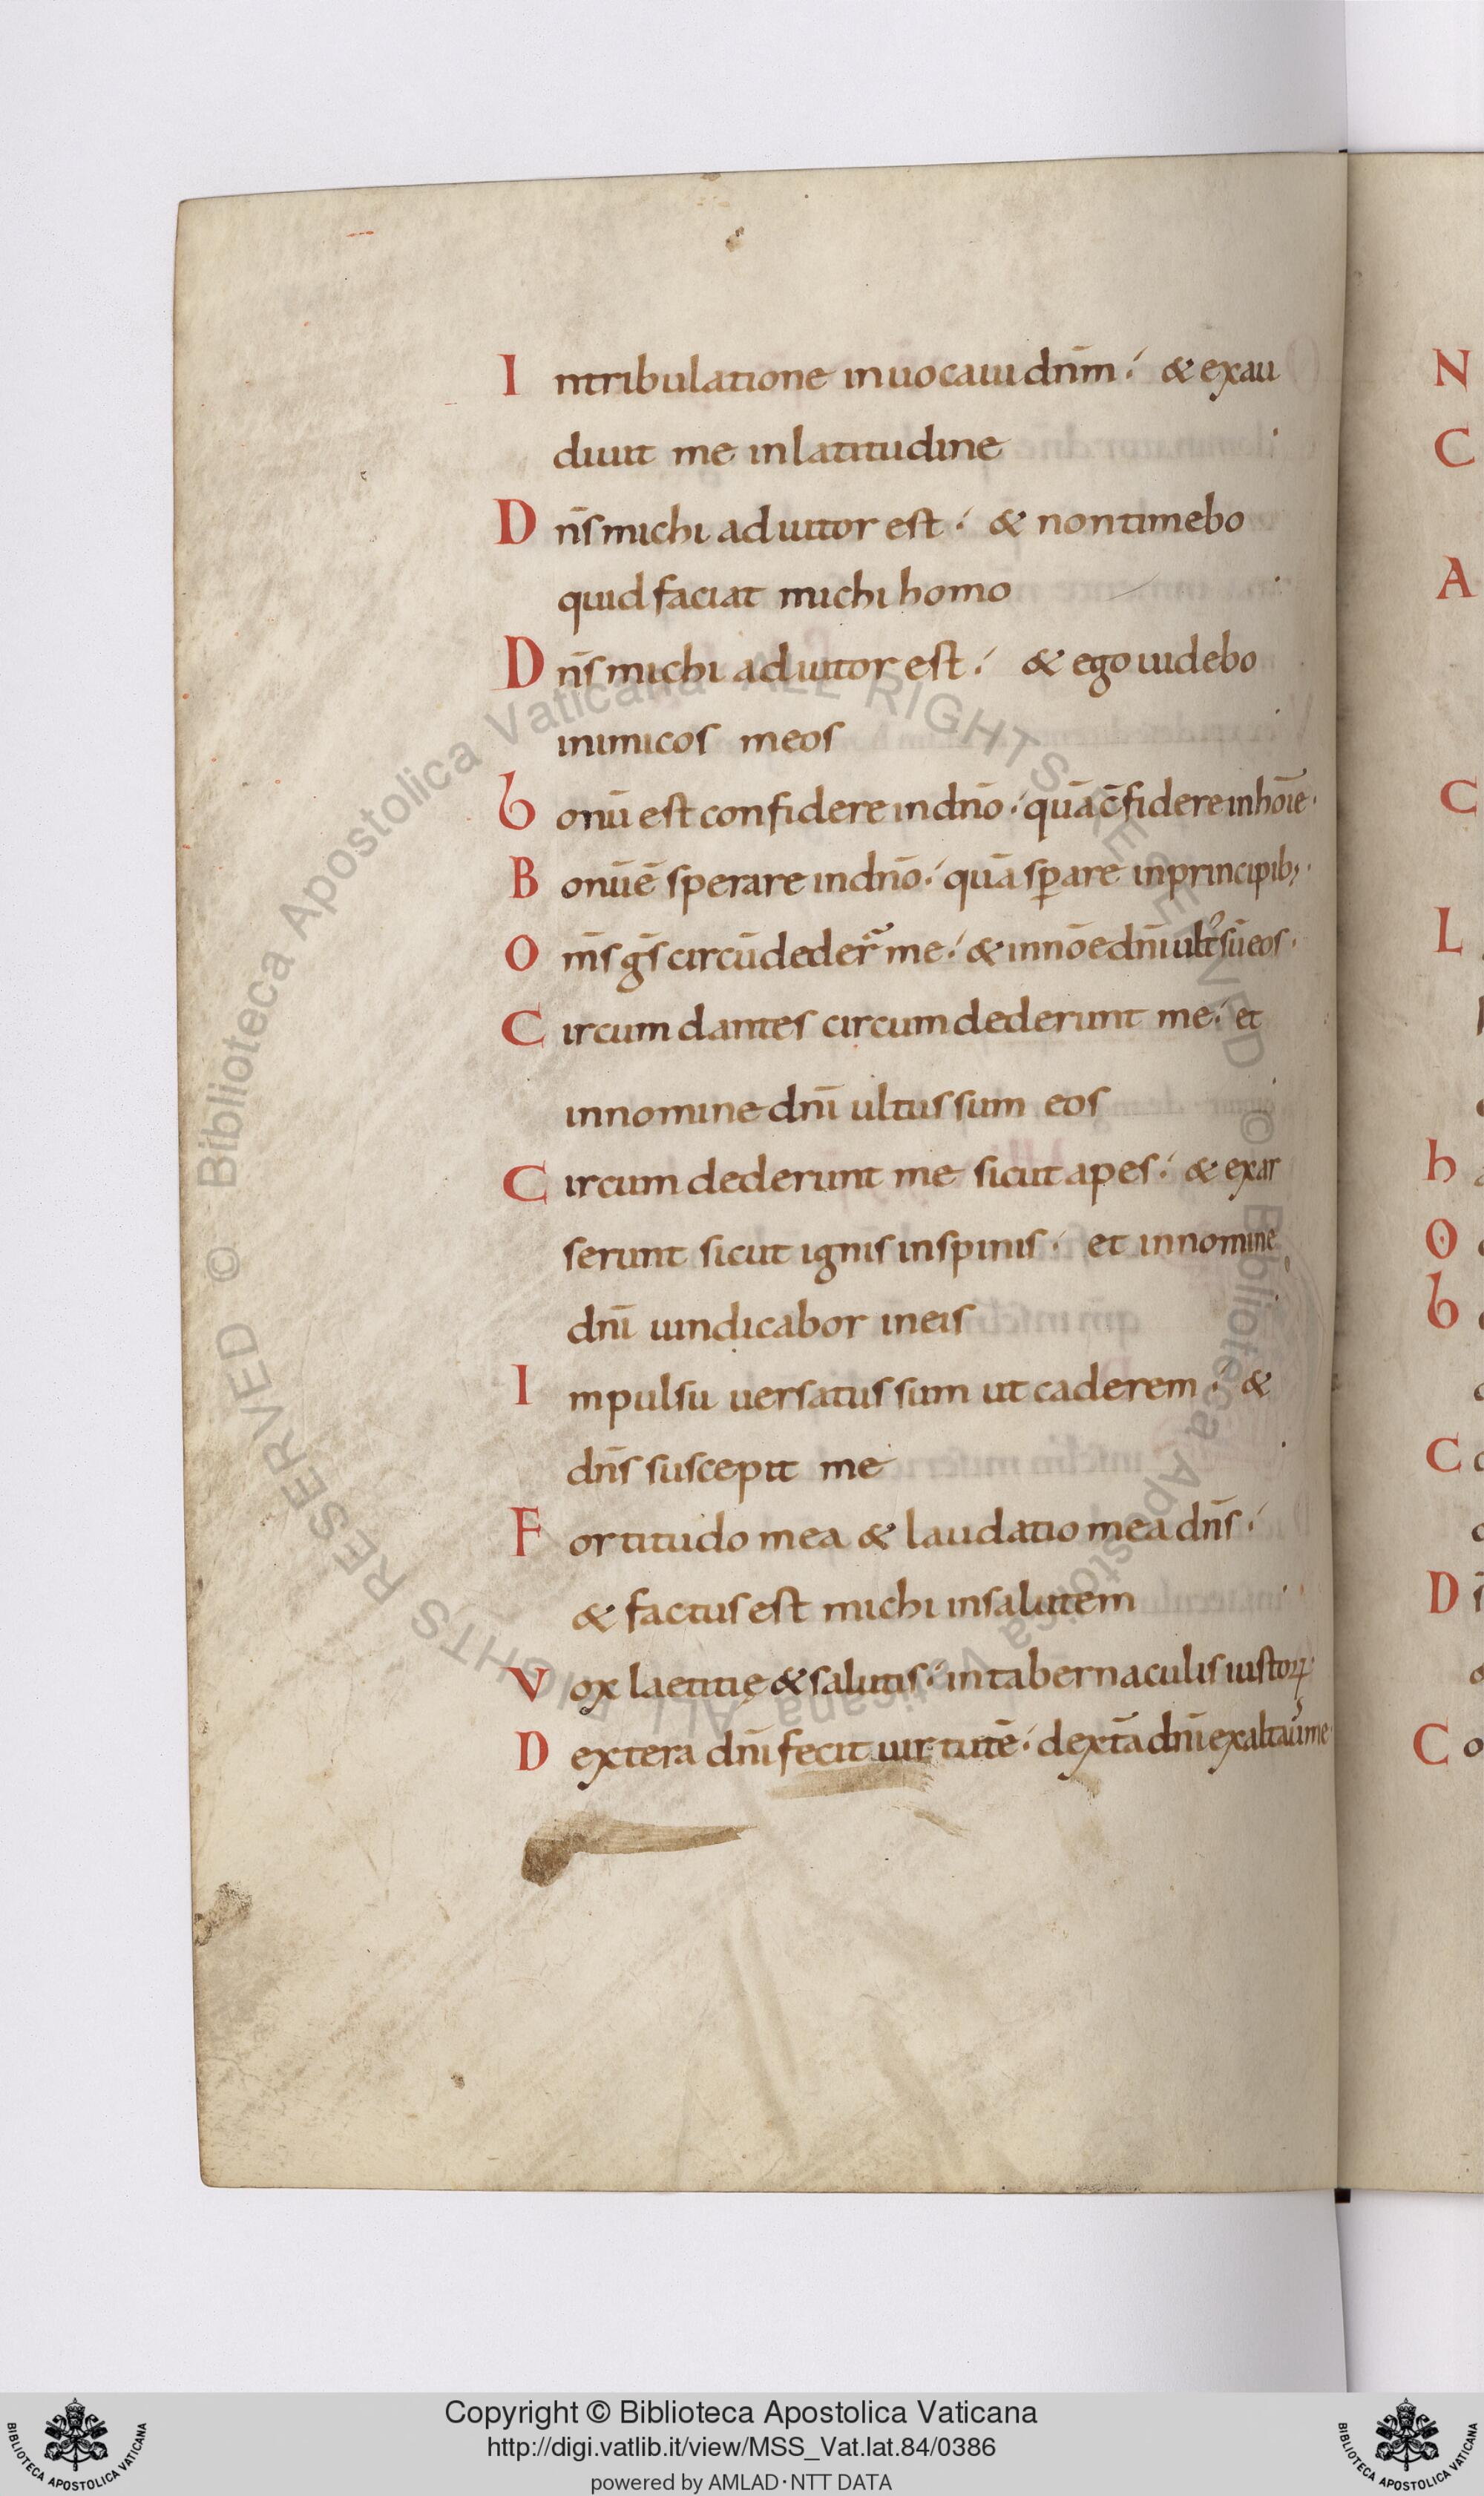 In tribulatione inuocaui dnm̄ & exau
diuit me in latitudine
Dn̄s michi adiutor est & non timebo
quid faciat michi homo
Dn̄s michi adiutor est & ego uidebo
inimicos meos
bonū est confidere in dn̄o quā c̄fidere in hoīe
Bonū ē sperare in dn̄o quā sꝑare in principib;
Om̄s ḡs circūdeder̄ me & in nōe dn̄i ult᷒ sū eos
Circumdantes circumdederunt me et
in nomine dn̄i ultus sum eos
Circumdederunt me sicut apes & exar
serunt sicut ignis in spinis et in nomine
dn̄i uindicabor in eis
Impulsu uersatus sum ut caderem &
dn̄s suscepit me
Fortitudo mea & laudatio mea dn̄s
& factus est michi in salutem
Vox laetitię & salutis in tabernaculis iustoꝝ
Dextera dn̄i fecit uirtutē dext̄a dn̄i exaltau̅ me
N
C
A
C
L
h
O
b
C
D
C o
© Biblioteca Apostolica Vaticana ALL RIGHTS RESERVED © Biblioteca Apostolica Vaticana ALL RIGHTS RESERVED
Copyright © Biblioteca Apostolica Vaticana
http://digi.vatlib.it/view/MSS_Vat.lat.84/0386
powered by AMLAD·NTT DATA
BIBLIOTECA APOSTOLICA VATICANA
BIBLIOTECA APOSTOLICA VATICANA